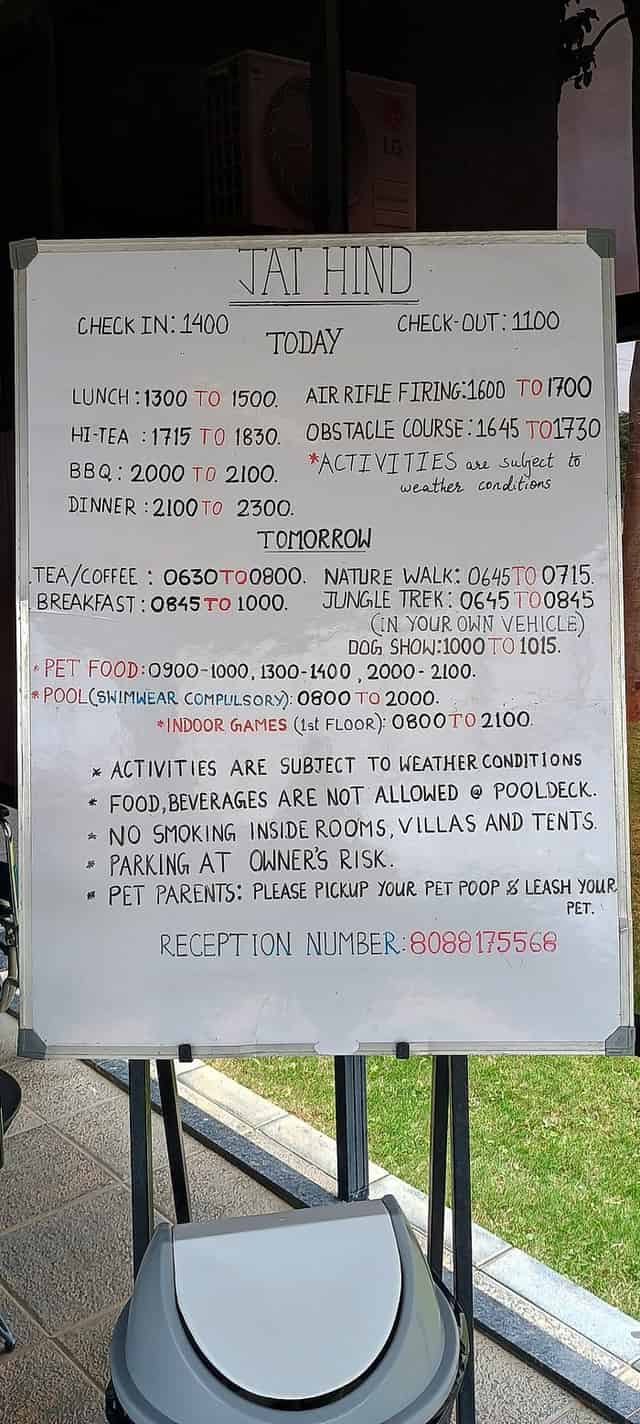 LG
JAI HIND
CHECK IN: 1400 CHECK-OUT: 1100
TODAY
LUNCH : 1300 TO 1500. AIR RIFLE FIRING: 1600 TO 1700
HI-TEA : 1715 TO 1830. OBSTACLE COURSE: 1645 TO 1730
BBQ: 2000 TO 2100. *ACTIVITIES are subject to
weather conditions
DINNER : 2100 TO 2300.
TOMORROW
TEA/COFFEE : 0630 TO 0800. NATURE WALK: 0645 TO 0715.
BREAKFAST: 0845 TO 1000. JUNGLE TREK: 0645 TO 0845
(IN YOUR OWN VEHICLE)
DOG SHOW: 1000 TO 1015.
* PET FOOD: 0900-1000, 1300-1400, 2000-2100.
* POOL (SWIMWEAR COMPULSORY): 0800 TO 2000.
* INDOOR GAMES (1st FLOOR): 0800 TO 2100.
* ACTIVITIES ARE SUBJECT TO WEATHER CONDITIONS
* FOOD, BEVERAGES ARE NOT ALLOWED @ POOLDECK.
* NO SMOKING INSIDE ROOMS, VILLAS AND TENTS.
* PARKING AT OWNER'S RISK.
* PET PARENTS: PLEASE PICKUP YOUR PET POOP & LEASH YOUR
PET.
RECEPTION NUMBER: 8088175568